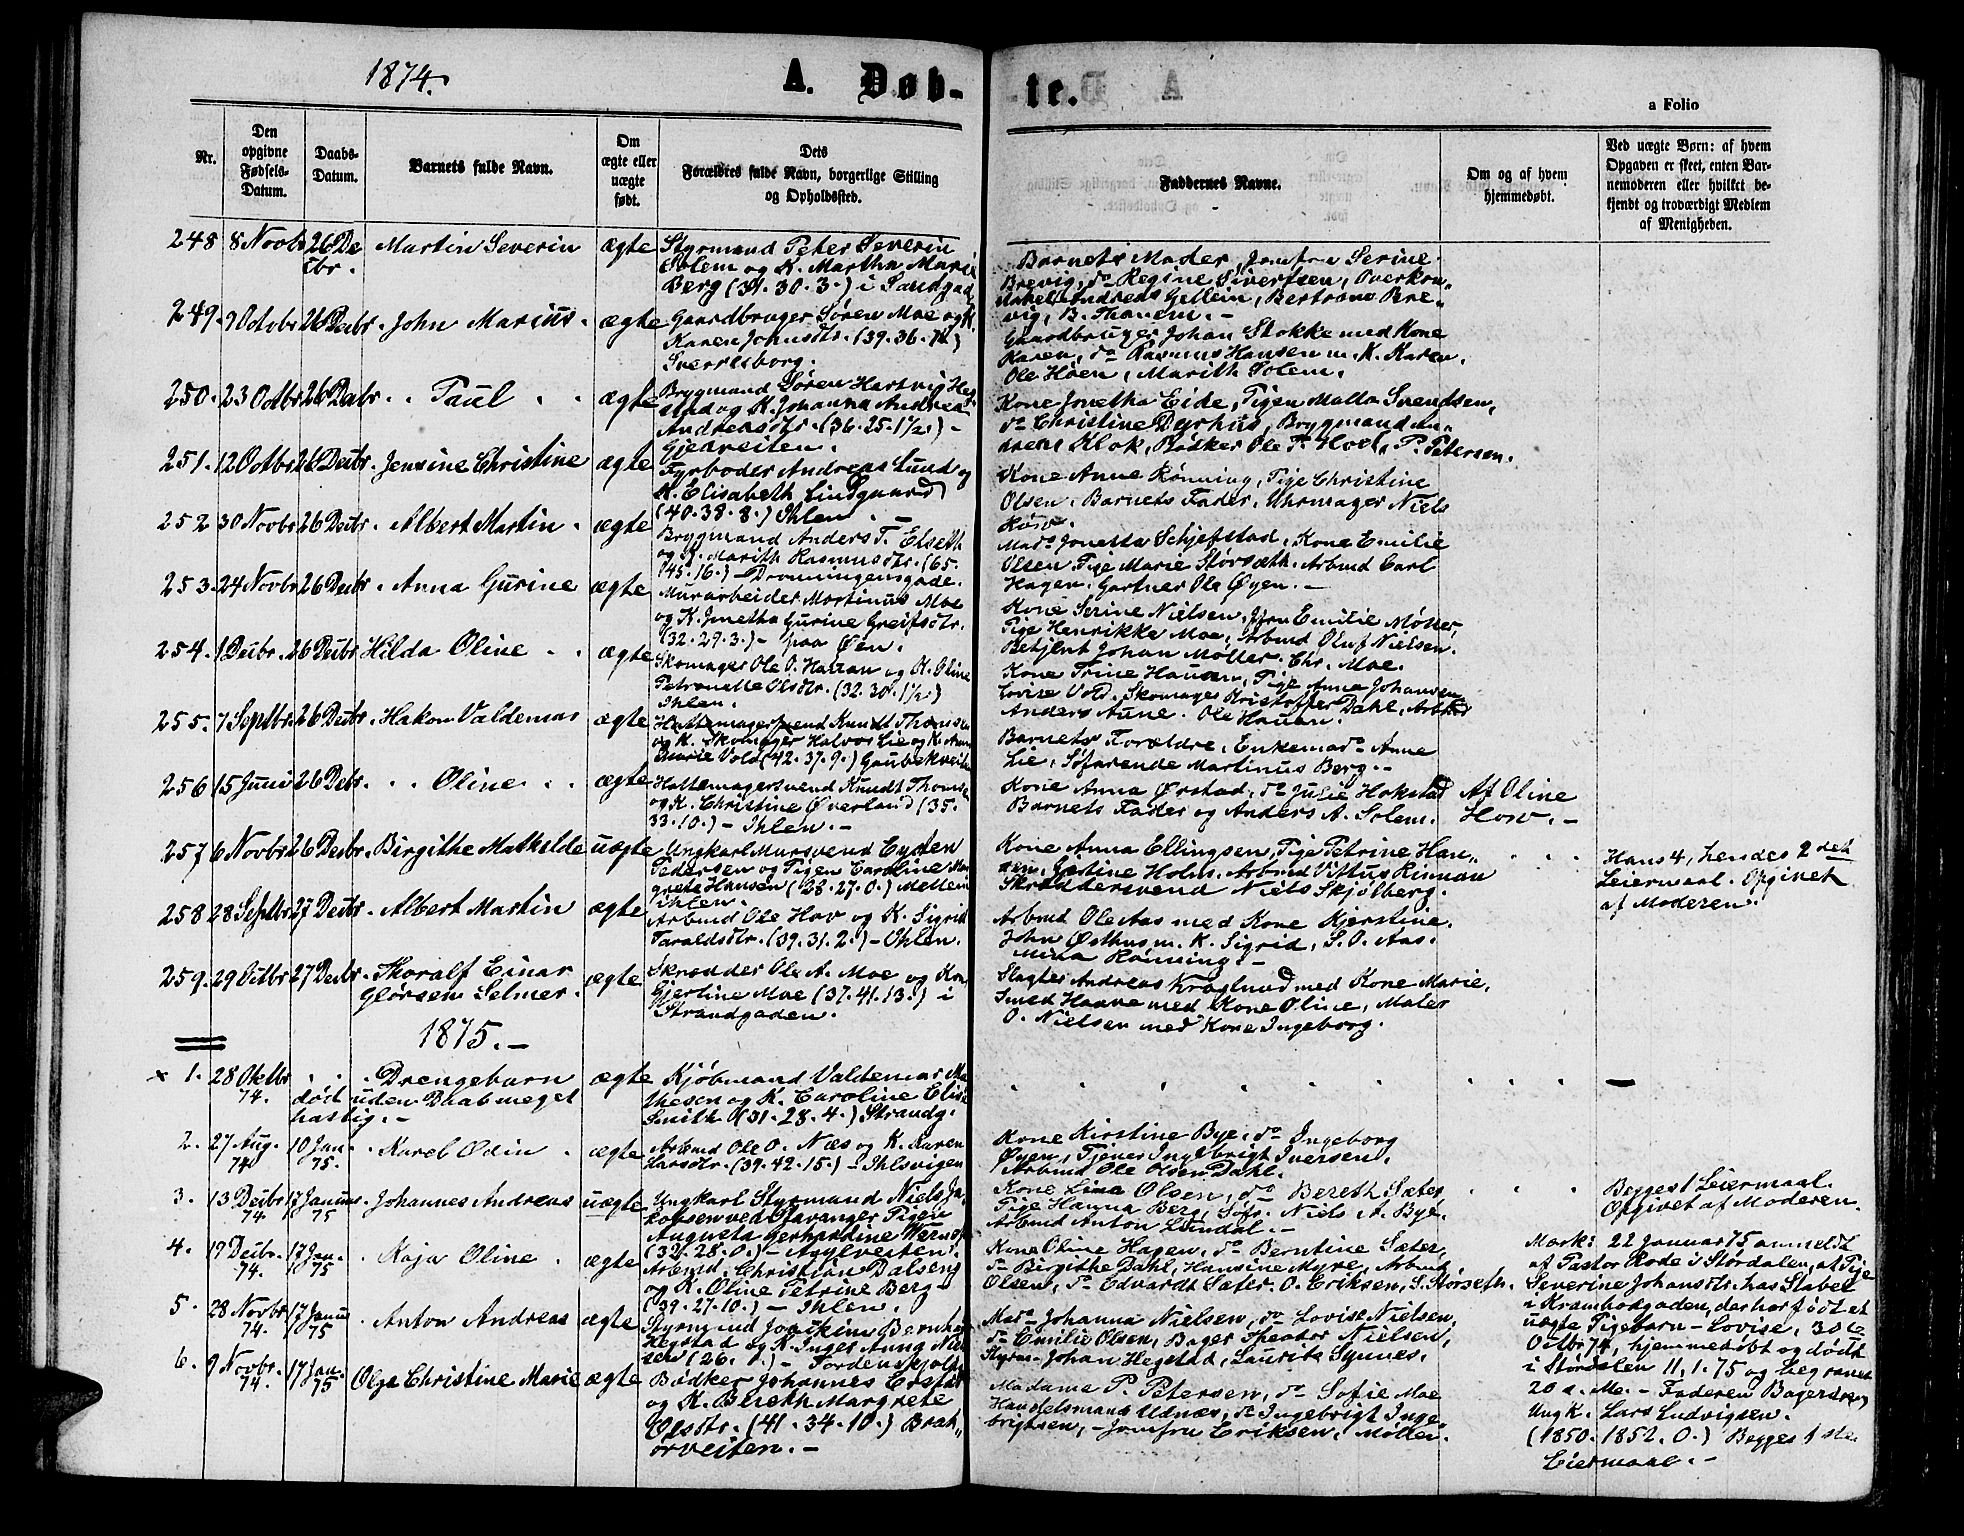 1874.
A. Døb-
te.
a Folio
Nr.
Den opgivne Fødsels-Datum.
Daabs-Datum.
Barnets fulde Navn.
Om ægte eller uægte født.
Dets
Forældres fulde Navn, borgerlige Stilling
og Opholdssted.
Faddernes Navne.
Om og af hvem
hjemmedøbt.
Ved uægte Børn: af hvem
Opgaven er skeet, enten Bar-
nemoderen eller hvilket be-
kjendt og troværdigt Medlem
af Menigheden.
248 8 Novbr 26 De
cbr. Martin Severin ægte
Styrmand Peter Severin
Solem og K. Martha Marie
Berg (31. 30. 3.) i Sandgad
Barnets Moder, Jomfru Serine
Brevig, do Regine Sivertsen, Overkon-
Andreas Gellein, Bertram Bre-
vig, B. Thanem. -
249. 9 Octobr 26 Decbr. John Marius. ægte
Gaardbruger Søren Moe og K.
Karen Johnsdtr. (39. 36. )
Sverresborg.
Gaardbruger Johan Stokke med Kone
Karen, do Rasmus Hansen m. K. Karen.
Ole Høen, Marith Solem.
250. 23 Octbr 26 Decbr . . Paul . . ægte
Brygmand Søren Hartvig Heg-
stad og K. Johanna Andrea
Andreasdtr. (36. 25. 1½.) -
Gjedveiten.
Kone Jonetha Eide, Pigen Malla Svendsen,
do Christine Dyrhus, Brygmand An-
Klok, Bødker Ole T. Hoel, P. Petersen.
251. 12 Octbr 26 Decbr. Jensine Christine ægte
Fyrbøder Andreas Lund og
K. Elisabeth Lindgaard
(40. 38. 8.) Ihlen. -
Kone Anne Rønning, Pige Christine
Olsen, Barnets Fader, Uhrmager Niels
How.
252 30 Novbr 26 Decbr . Albert Martin . ægte
Brygmand Anders T. Elseth
og K. Marith Rasmusdtr. (65.
45. 16.) - Dronningensgade.
Mad. Jonetta Schjefstad, Kone Emilie
Olsen Pige Marie Størsæth. Arbmd Carl
Hagen. Gartner Ole Øyen. -
253. 24 Novbr 26 Decbr . Anna Gurine ægte
Murarbeider Martinus Moe
og K. Jonetha Gurine Greifsdtr.
(32. 29. 3.) - paa Øen.
Kone Serine Nielsen, Jfru Emilie Møller,
Pige Henrikke Moe, Arbmd Oluf Nielsen.
Betjent Johan Møller. Chr. Moe.
254. 1 Decbr. 26 Decbr Hilda Oline . . ægte
Skomager Ole O. Harran og K. Oline
Petronelle Olsdtr. (32. 30. 1½)
Ihlen.
Kone Trine Hansen, Pige Anna Johansen
Lovise Vold. Skomager Kristoffer Dahl, Arbmd
Anders Aune. Ole Hauan.
255. 7 Septbr. 26 Decbr . Hakon Valdemar ægte
Hattemagersvend Knudt Thomsen
og K. Skomager Halvor Lie og K. Anne
Marie Vold (42. 37. 9.) Gaubekveiten
Barnets Forældre, Enkemad. Anne
Lie, Søfarende Martinus Berg. -
256 15 Juni 26 Decbr. . . Oline . . ægte
Hattemagersvend Knudt Thomsen
og K. Christine Øverland (35.
33. 10.) - Ihlen. -
Kone Anna Ørstad, do Julie Hokstad
Barnets Fader og Anders A. Solem.
Af Oline
How. -
257 6 Novbr 26 Decbr. Birgithe Mathilde uægte
Ungkarl Mursvend Enden
Pedersen og Pigen Caroline Mar-
grete Hansen (28. 27. 0.) Mellem
Ihlen.
Kone Anna Ellingsen, Pige Petrine Han-
sen, Gjertine Holm. Arbmd Vittus Rinnan
Skræddersvend Niels Skjølberg.
Hans 4, hendes 2det
Leiermaal. Opgivet
af Moderen.
258 28 Septbr. 27 Decbr. Albert Martin ægte
Arbmd Ole Hov og K. Sigrid
Taraldsdtr. (39. 31. 2.) - Ihlen.
Arbmd Ole Aas med Kone Kjerstine.
John Østhus m. K. Sigrid, S. O. Aas.
Mina Rønning. -
259. 29 Octbr. 27 Decbr. Thoralf Einar
Glørsen Selmer. ægte
Skrædder Ole A. Moe og Kone
Gjertine Moe (37. 41. 13.) i
Strandgaden.
Slagter Andreas Kroglund med Kone Marie,
Smed Haave med Kone Oline, Maler
O. Nielsen med Kone Ingeborg.
1875. -
x 1. 28 Oktbr
74. . . . Drengebarn
død uden Daab meget
hastig. - ægte
Kjøbmand Valdemar Ma-
thesen og K. Caroline Elise
Smith (31. 28. 4.) Strandg.
2. 27 Aug.
74 10 Jan.
75. . Karel Odin . ægte
Arbmd Ole O. Næs og K. Karen
Larsdtr. (39. 42. 15.) - Ihlsvigen
Kone Kirstine Bye, do Ingeborg
Øyen, Tjener Ingebrigt Iversen.
Arbmd Ole Olsen Dahl.
3. 13 Decbr
74. 17 Januar
75 . Johannes Andreas uægte
Ungkarl Styrmand Niels Ja-
kobsen ved Stavanger Pigen
Augusta Gerhardine Werns
(32. 28. 0.) - Asylveiten.
Kone Lina Olsen, do Bereth Sæter,
Pige Hanna Berg, Søfr. Niels A. Bye.
Arbmd Anton Lundal. -
Begges 1 Leiermaal.
Opgivet af Moderen.
4. 19 Decbr.
74. 17 Jan.
75 . Kaja Oline . ægte
Arbmd. Christian Dalseng
og K. Oline Petrine Berg
(39. 27. 10.) - Ihlen.
Kone Oline Hagen, do Berntine Sæter,
do Birgithe Dahl, Hansine Myre, Arbmd
Olsen, do Edvardt Sæter. O. Eriksen, S. Størseth.
5. 28 Novbr
74. 17 Januar
75 . Anton Andreas ægte
Styrmand Joakim Bernhard
Hegstad og K. Inger Anna Niel-
sen (26. 1.) - Tordenskjolds
Mad. Johanna Nielsen, do Lovise Nielsen,
do Emilie Olsen, Bager Theodor Nielsen,
Styrm. Johan Hegstad, Laurits Synnes.
6. 9 Novbr.
74. 17 Jan.
75 Olga Christine Marie ægte
Bødker Johannes Erstad
og K. Bereth Margrete
Olsdtr. (41. 34. 10.) Brat-
ørveiten. -
Madame P. Petersen, do Sofie Moe
Handelsmand Udnæs, do Ingebrigt Inge-
brigtsen, - Jomfru Eriksen, Møller.
Mærk: 22 Januar 75 anmeldt
af Pastor Rode i Størdalen, at Pige
Severine Johansdtr. hos Stabel
i Krambodgaden, der har født et
uægte Pigebarn - Lovise, 30te
Octbr 74, hjemmedøbt og dødt
i Stördalen 11. 1. 75 og begravet
20 s. M. - Faderen Bagersvend
Ung K. Lars Ludvigsen.
(1850. 1852. 0.) Begges 1ste
Leiermaal. -